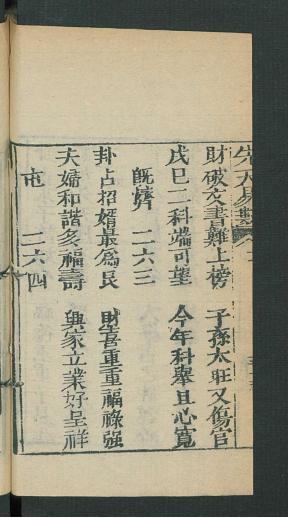 先天易數
財破文書難上榜　子孫太旺又傷官
戊巳二科端可望　今年科舉且心寬
既濟　二六三
卦占招婿最爲良　財喜重重福祿强
夫婦和諧多福壽　興家立業好呈祥
屯　二六四